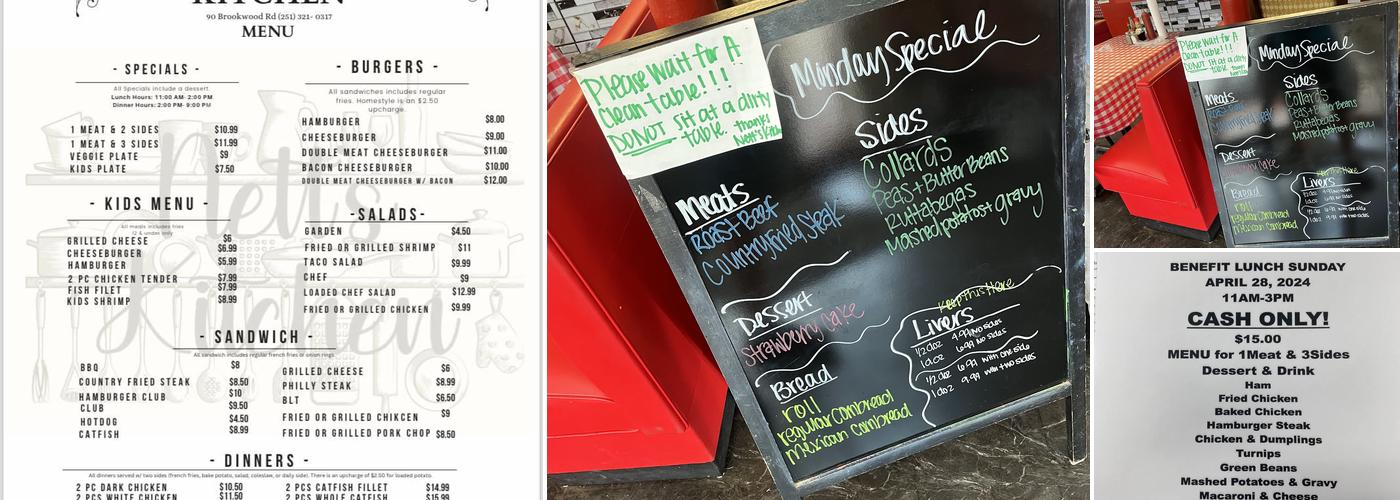 KITCHEN
90 Brookwood Rd (251) 321- 0317
MENU
- SPECIALS -
All Specials include a dessert.
Lunch Hours: 11:00 AM- 2:00 PM
Dinner Hours: 2:00 PM- 9:00 PM
1 MEAT & 2 SIDES $10.99
1 MEAT & 3 SIDES $11.99
VEGGIE PLATE $9
KIDS PLATE $7.50
- KIDS MENU -
All meals includes fries
12 & under only
GRILLED CHEESE $6
CHEESEBURGER $6.99
HAMBURGER $5.99
2 PC CHICKEN TENDER $7.99
FISH FILET $7.99
KIDS SHRIMP $8.99
- BURGERS -
All sandwiches includes regular
fries. Homestyle is an $2.50
upcharge.
HAMBURGER $8.00
CHEESEBURGER $9.00
DOUBLE MEAT CHEESEBURGER $11.00
BACON CHEESEBURGER $10.00
DOUBLE MEAT CHEESEBURGER W/ BACON $12.00
-SALADS-
GARDEN $4.50
FRIED OR GRILLED SHRIMP $11
TACO SALAD $9.99
CHEF $9
LOADED CHEF SALAD $12.99
FRIED OR GRILLED CHICKEN $9.99
Nett's
Kitchen
- SANDWICH -
All sandwich includes regular french fries or onion rings
BBQ $8
COUNTRY FRIED STEAK $8.50
HAMBURGER CLUB $10
CLUB $9.50
HOTDOG $4.50
CATFISH $8.99
GRILLED CHEESE $6
PHILLY STEAK $8.99
BLT $6.50
FRIED OR GRILLED CHIKCEN $9
FRIED OR GRILLED PORK CHOP $8.50
- DINNERS -
All dinners served w/ two sides (french fries, bake potato, salad, coleslaw, or daily side). There is an upcharge of $2.50 for loaded potato.
2 PC DARK CHICKEN $10.50
2 PCS WHITE CHICKEN $11.50
2 PCS CATFISH FILLET $14.99
2 PCS WHOLE CATFISH $15.99
Please Wait for A
Clean table!!!
DO NOT sit at a dirty
table. Thanks
Nett's Kitchen
Minday Special
Meats
Roast Beef
Country fried Steak
Sides
Collards
Peas + Butter Beans
Ruttabegas
Mashed potatos + gravy
Dessert
Strawberry Cake
Bread
roll
regular Cornbread
Mexican Cornbread
Keep This Here
Livers
1/2 doz 4.99 no sides
1 doz 6.99 no sides
1/2 doz 6.99 with one side
1 doz 9.99 with two sides
Please Wait for A
Clean table!!!
DO NOT sit at a dirty
table. Thanks
Minday Special
Meats
Roast Beef
Country fried Steak
Sides
Collards
Peas + Butter Beans
Ruttabegas
Mashed potatos + gravy
Dessert
Strawberry Cake
Bread
roll
regular Cornbread
Mexican Cornbread
Keep This Here
Livers
1/2 doz 4.99 no sides
1 doz 6.99 no sides
1/2 doz 6.99 with one side
1 doz 9.99 with two sides
BENEFIT LUNCH SUNDAY
APRIL 28, 2024
11AM-3PM
CASH ONLY!
$15.00
MENU for 1Meat & 3Sides
Dessert & Drink
Ham
Fried Chicken
Baked Chicken
Hamburger Steak
Chicken & Dumplings
Turnips
Green Beans
Mashed Potatoes & Gravy
Macaroni & Cheese